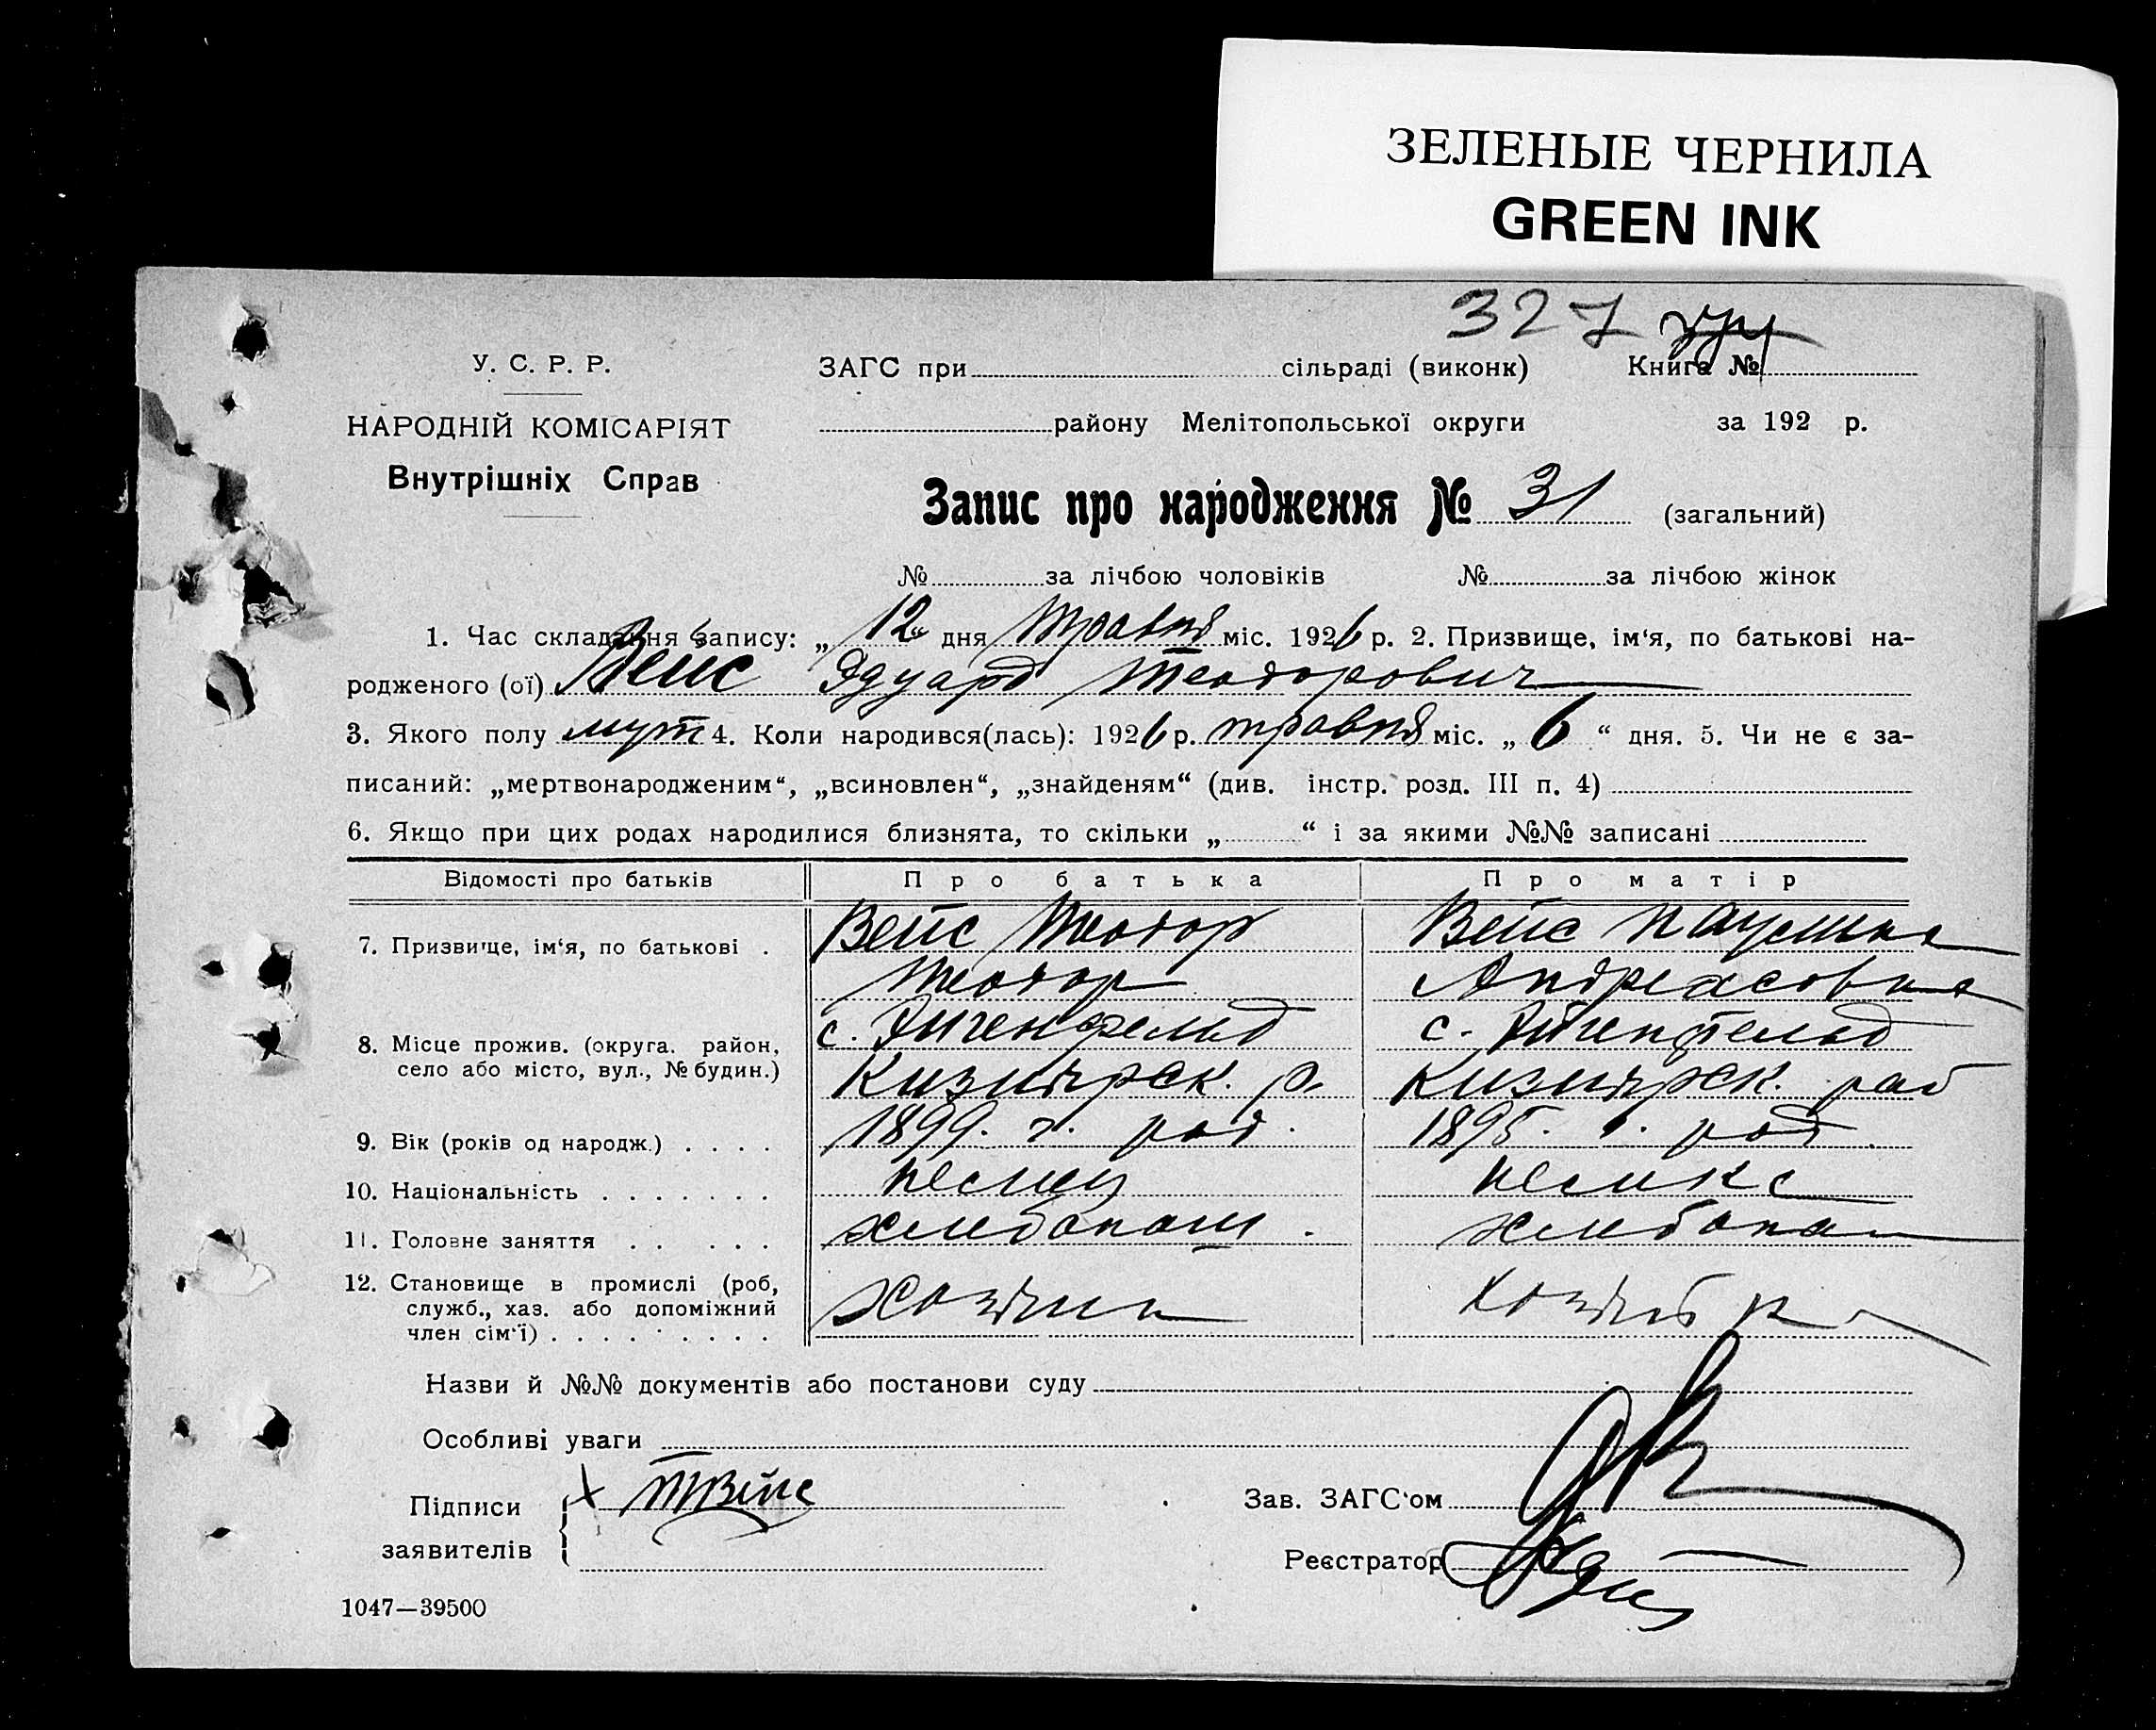 ЗЕЛЕНЫЕ ЧЕРНИЛА
GREEN INK
327
У. С. Р. Р.
ЗАГС при сільраді (виконк) Книга №
НАРОДНІЙ КОМІСАРІЯТ
району Мелітопольської округи за 192 р.
Внутрішніх Справ
Запис про народження № 31 (загальний)
№ за лічбою чоловіків № за лічбою жінок
1. Час складання запису: „12“ дня травня міс. 1926 р. 2. Призвище, ім‘я, по батькові на-
родженого (ої) Вейс Эдуард Теодорович
3. Якого полу муж 4. Коли народився(лась): 1926 р. травня міс. „6“ дня. 5. Чи не є за-
писаний: „мертвонародженим“, „всиновлен“, „знайденям“ (див. інстр. розд. III п. 4)
6. Якщо при цих родах народилися близнята, то скільки „ “ і за якими №№ записані
Відомості про батьків Про батька Про матір
7. Призвище, ім‘я, по батькові . Вейс Теодор Вейс Паулина
Теодор Андреасовна
8. Місце прожив. (округа. район, с. Эйгенфельд с. Эйгенфельд
село або місто, вул., № будин.) Кизиярск. р. Кизиярск. рай
9. Вік (років од народж.) . . . . 1899. г. род. 1895. г. род
10. Національність . . . . . . . немец немка
11. Головне заняття . . . . . хлебопаш. хлебопаш
12. Становище в промислі (роб, хозяин хозяйка
служб., хаз. або допоміжний
член сім‘ї) . . . . . . . . .
Назви й №№ документів або постанови суду
Особливі уваги
Підписи х ТВейс
заявителів
Зав. ЗАГС‘ом
Реєстратор
1047—39500